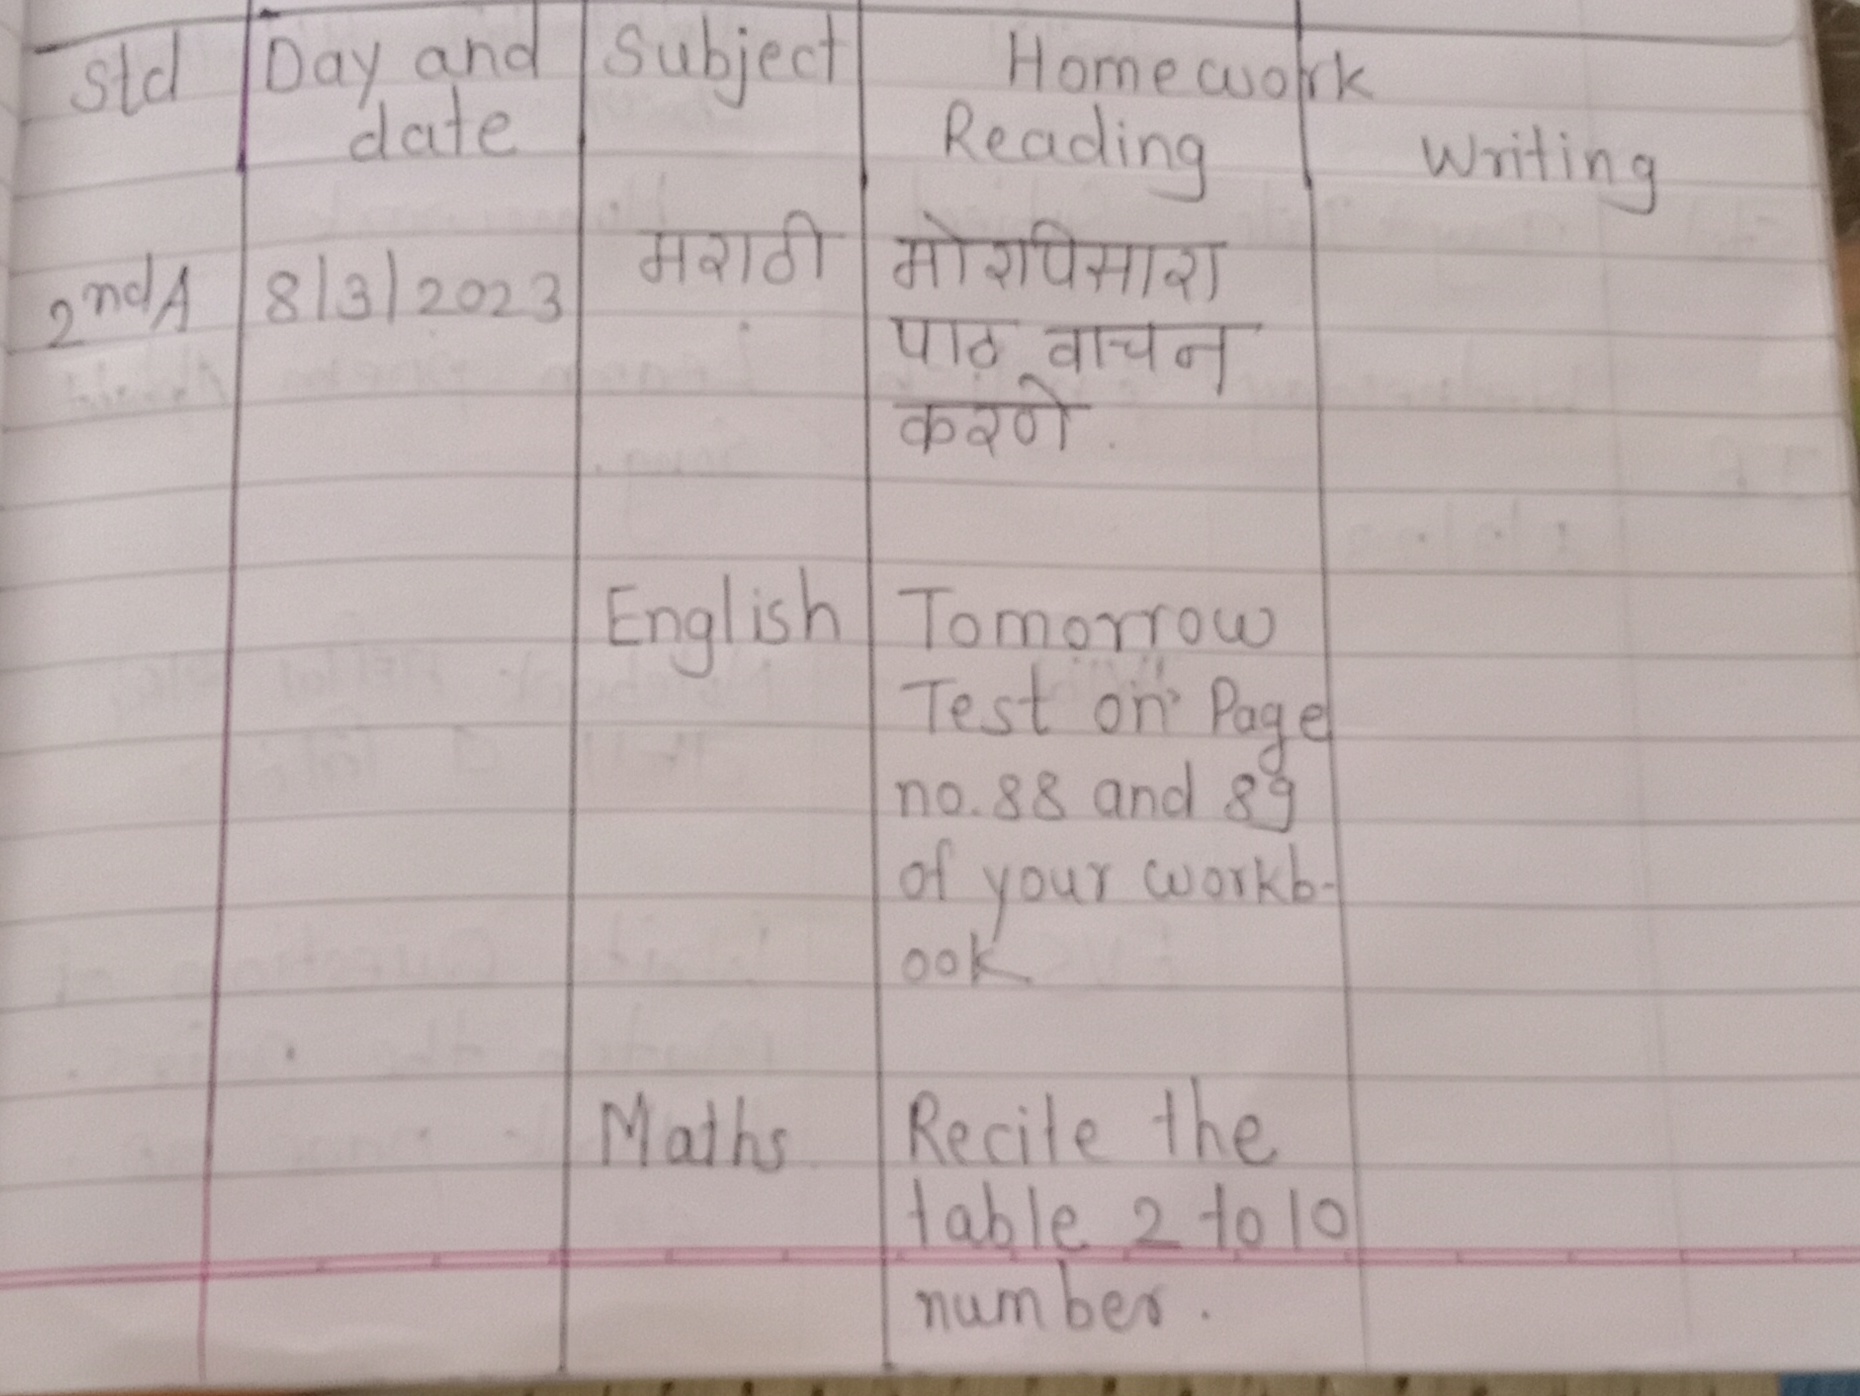 Std Day and Subject Homework
date Reading Writing
2nd A 8/3/2023 मराठी मोरपिसारा
पाठ वाचन
करणे.
English Tomorrow
Test on Page
no. 88 and 89
of your workb-
ook
Maths Recite the
table 2 to 10
number.